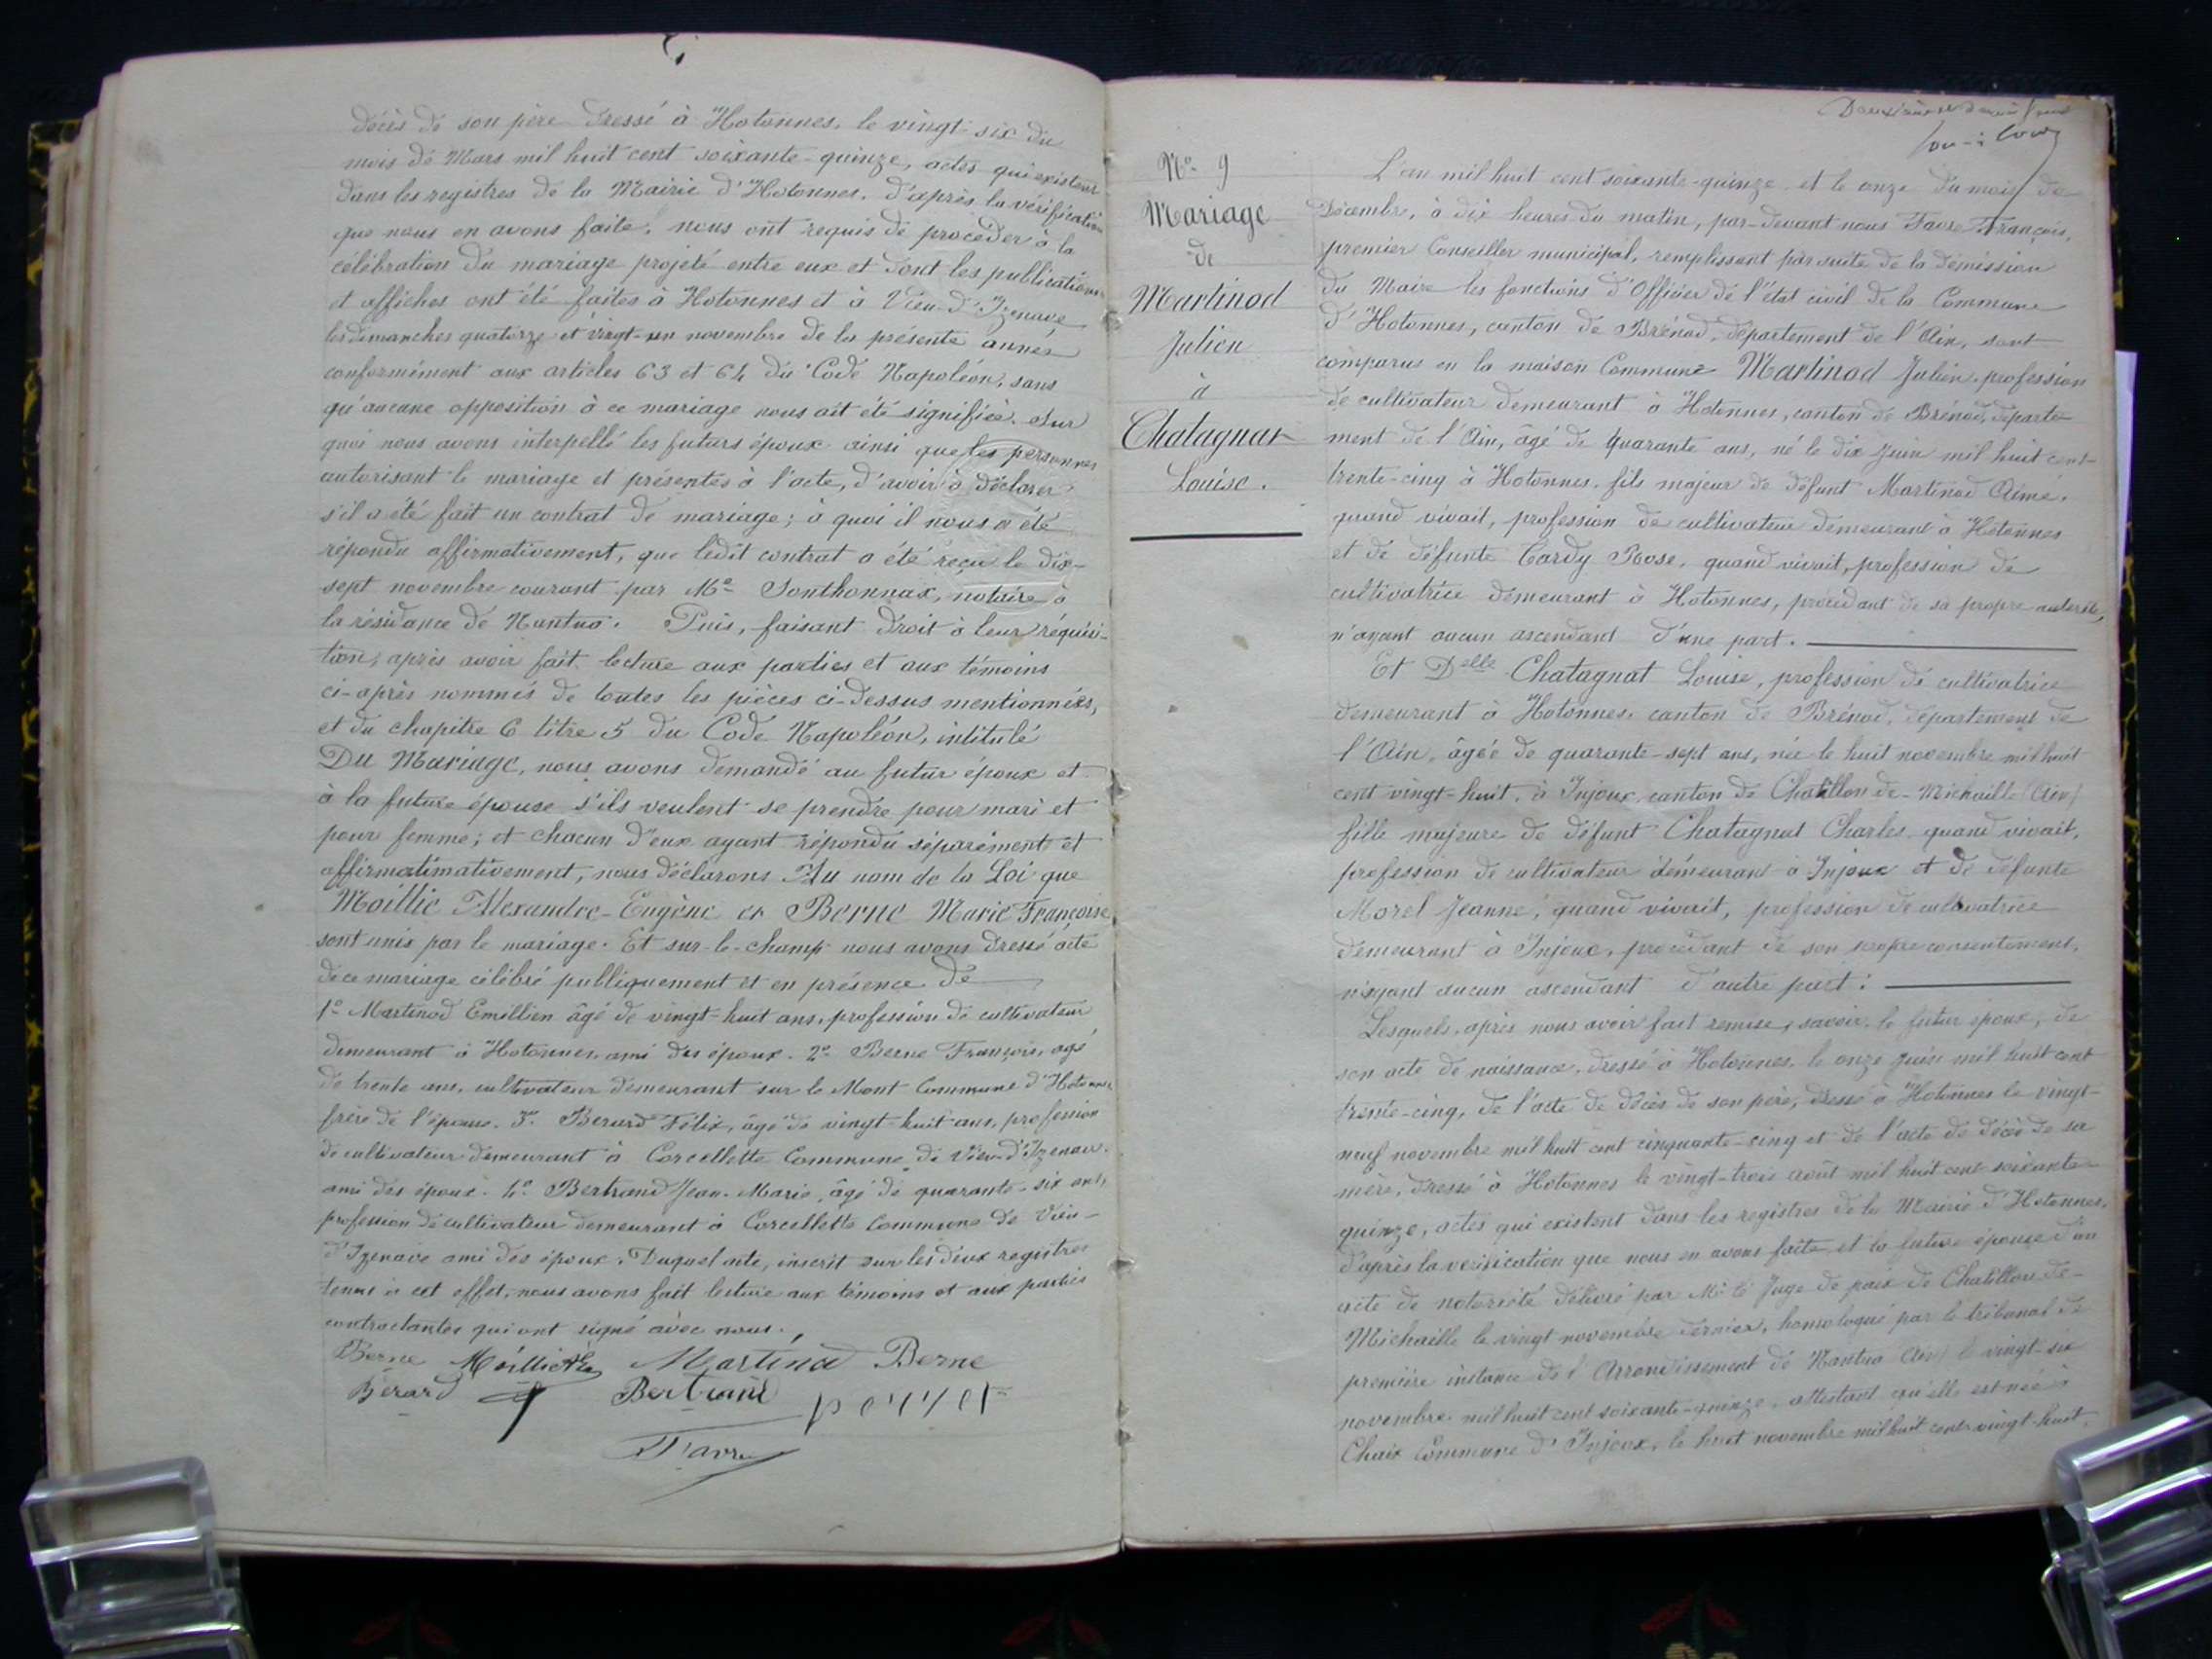 décès de son père dressé à Hotonnes, le vingt-six du
mois de Mars mil huit cent soixante-quinze, actes qui existent
dans les registres de la Mairie d'Hotonnes, d'après la vérification
que nous en avons faite, nous ont requis de procéder à la
célébration du mariage projeté entre eux et dont les publications
et affiches ont été faites à Hotonnes et à Vieu-d'Izenave
les dimanches quatorze et vingt-un novembre de la présente année
conformément aux articles 63 et 64 du Code Napoléon, sans
qu'aucune opposition à ce mariage nous ait été signifiée. Sur
quoi nous avons interpellé les futurs époux ainsi que les personnes
autorisant le mariage et présentes à l'acte, d'avoir à déclarer
s'il a été fait un contrat de mariage; à quoi il nous a été
répondu affirmativement, que ledit contrat a été reçu le dix-
sept novembre courant par Me Sonthonnax, notaire à
la résidance de Nantua. Puis, faisant droit à leur réquisi-
tion, après avoir fait lecture aux parties et aux témoins
ci-après nommés de toutes les pièces ci-dessus mentionnées,
et du chapitre 6 titre 5 du Code Napoléon, intitulé
Du Mariage, nous avons demandé au futur époux et
à la future épouse s'ils veulent se prendre pour mari et
pour femme; et chacun d'eux ayant répondu séparément et
affirmatimativement, nous déclarons Au nom de la Loi que
Moillie Alexandre-Eugène et Berne Marie Françoise
sont unis par le mariage. Et sur-le-champ nous avons dressé acte
de ce mariage célébré publiquement et en présence de
1° Martinod Emillien âgé de vingt-huit ans, profession de cultivateur
demeurant à Hotonnes, ami des époux. 2° Berne François, agé
de trente ans, cultivateur demeurant sur le Mont Commune d'Hotonnes
frère de l'épouse. 3° Berard Félix, âgé de vingt-huit ans, profession
de cultivateur demeurant à Corcellette Commune de Vieu-d'Izenave.
ami des époux. 4° Bertrand Jean-Marie, âgé de quarante-six ans,
profession de cultivateur demeurant à Corcellette Commune de Vieu-
d'Izenave ami des époux. Duquel acte, inscrit sur les deux registres
tenus à cet effet, nous avons fait lecture aux témoins et aux parties
contractantes qui ont signé avec nous.
Berne Moillie Martinod Berne
Berard Bertrand
Favre
N° 9
Mariage
de
Martinod
Julien
à
Chatagnat
Louise.
L'an mil huit cent soixante-quinze et le onze du mois de
Décembre, à dix heures du matin, par-devant nous Favre François,
premier Conseiller municipal, remplissant par suite de la démission
du Maire les fonctions d'Officier de l'état civil de la Commune
d'Hotonnes, canton de Brénod, département de l'Ain, sont
comparus en la maison Commune Martinod Julien, profession
de cultivateur demeurant à Hotonnes, canton de Brénod, départe-
ment de l'Ain, âgé de quarante ans, né le dix Juin mil huit cent
trente-cinq à Hotonnes, fils majeur de défunt Martinod Aimé,
quand vivait, profession de cultivateur demeurant à Hotonnes
et de défunte Cardy Rose, quand vivait, profession de
cultivatrice demeurant à Hotonnes, procédant de sa propre autorité,
n'ayant aucun ascendant d'une part.
Et Delle Chatagnat Louise, profession de cultivatrice
demeurant à Hotonnes, canton de Brénod, département de
l'Ain, âgée de quarante-sept ans, née le huit novembre mil huit
cent vingt-huit, à Injoux, canton de Chatillon-de-Michaille (Ain)
fille majeure de défunt Chatagnat Charles quand vivait,
profession de cultivateur demeurant à Injoux et de défunte
Morel Jeanne, quand vivait, profession de cultivatrice
demeurant à Injoux, procédant de son propre consentement,
n'ayant aucun ascendant d'autre part:
Lesquels, après nous avoir fait remise, savoir, le futur époux, de
son acte de naissance, dressé à Hotonnes, le onze Juin mil huit cent
trente-cinq, de l'acte de décès de son père, dressé à Hotonnes le vingt-
neuf novembre mil huit cent cinquante-cinq et de l'acte de décès de sa
mère, dressé à Hotonnes le vingt-trois août mil huit cent soixante-
quinze, actes qui existent dans les registres de la Mairie d'Hotonnes,
d'après la vérification que nous en avons faite, et la future épouse d'un
acte de notoriété délivré par Mr le Juge de paix de Chatillon-de-
Michaille le vingt novembre dernier, homologué par le tribunal de
première instance de l'Arrondissement de Nantua (Ain) le vingt-six
novembre mil huit cent soixante-quinze, attestant qu'elle est née à
Chaix Commune d'Injoux, le huit novembre mil huit cent vingt-huit,